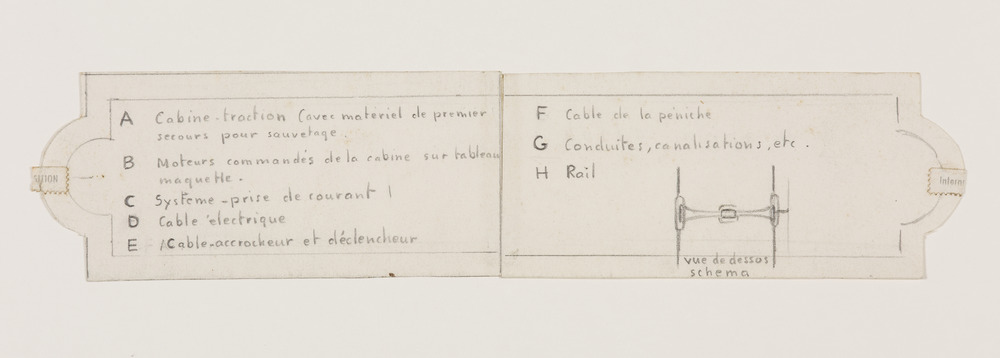 A Cabine-traction (avec matériel de premier
secours pour sauvetage.
B Moteurs commandés de la cabine sur tableau
maquette.
C Système-prise de courant
D Cable électrique
E Cable-accrocheur et déclencheur
F Cable de la péniche
G Conduites, canalisations, etc.
H Rail
vue de dessos
schema
SITION
Intern